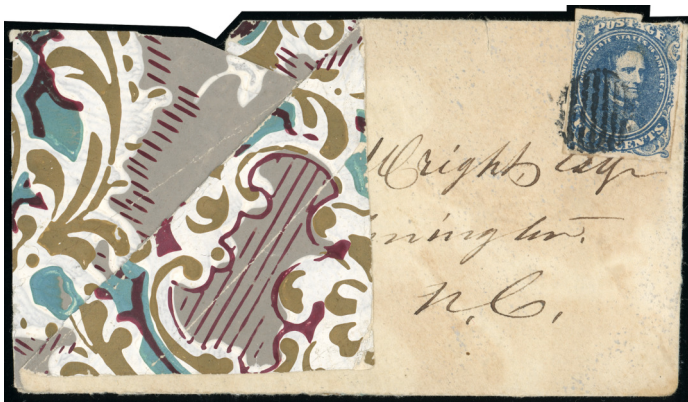 POSTAGE
CONFEDERATE STATES OF AMERICA
CENTS
Wright Esqr
mington.
N.C.